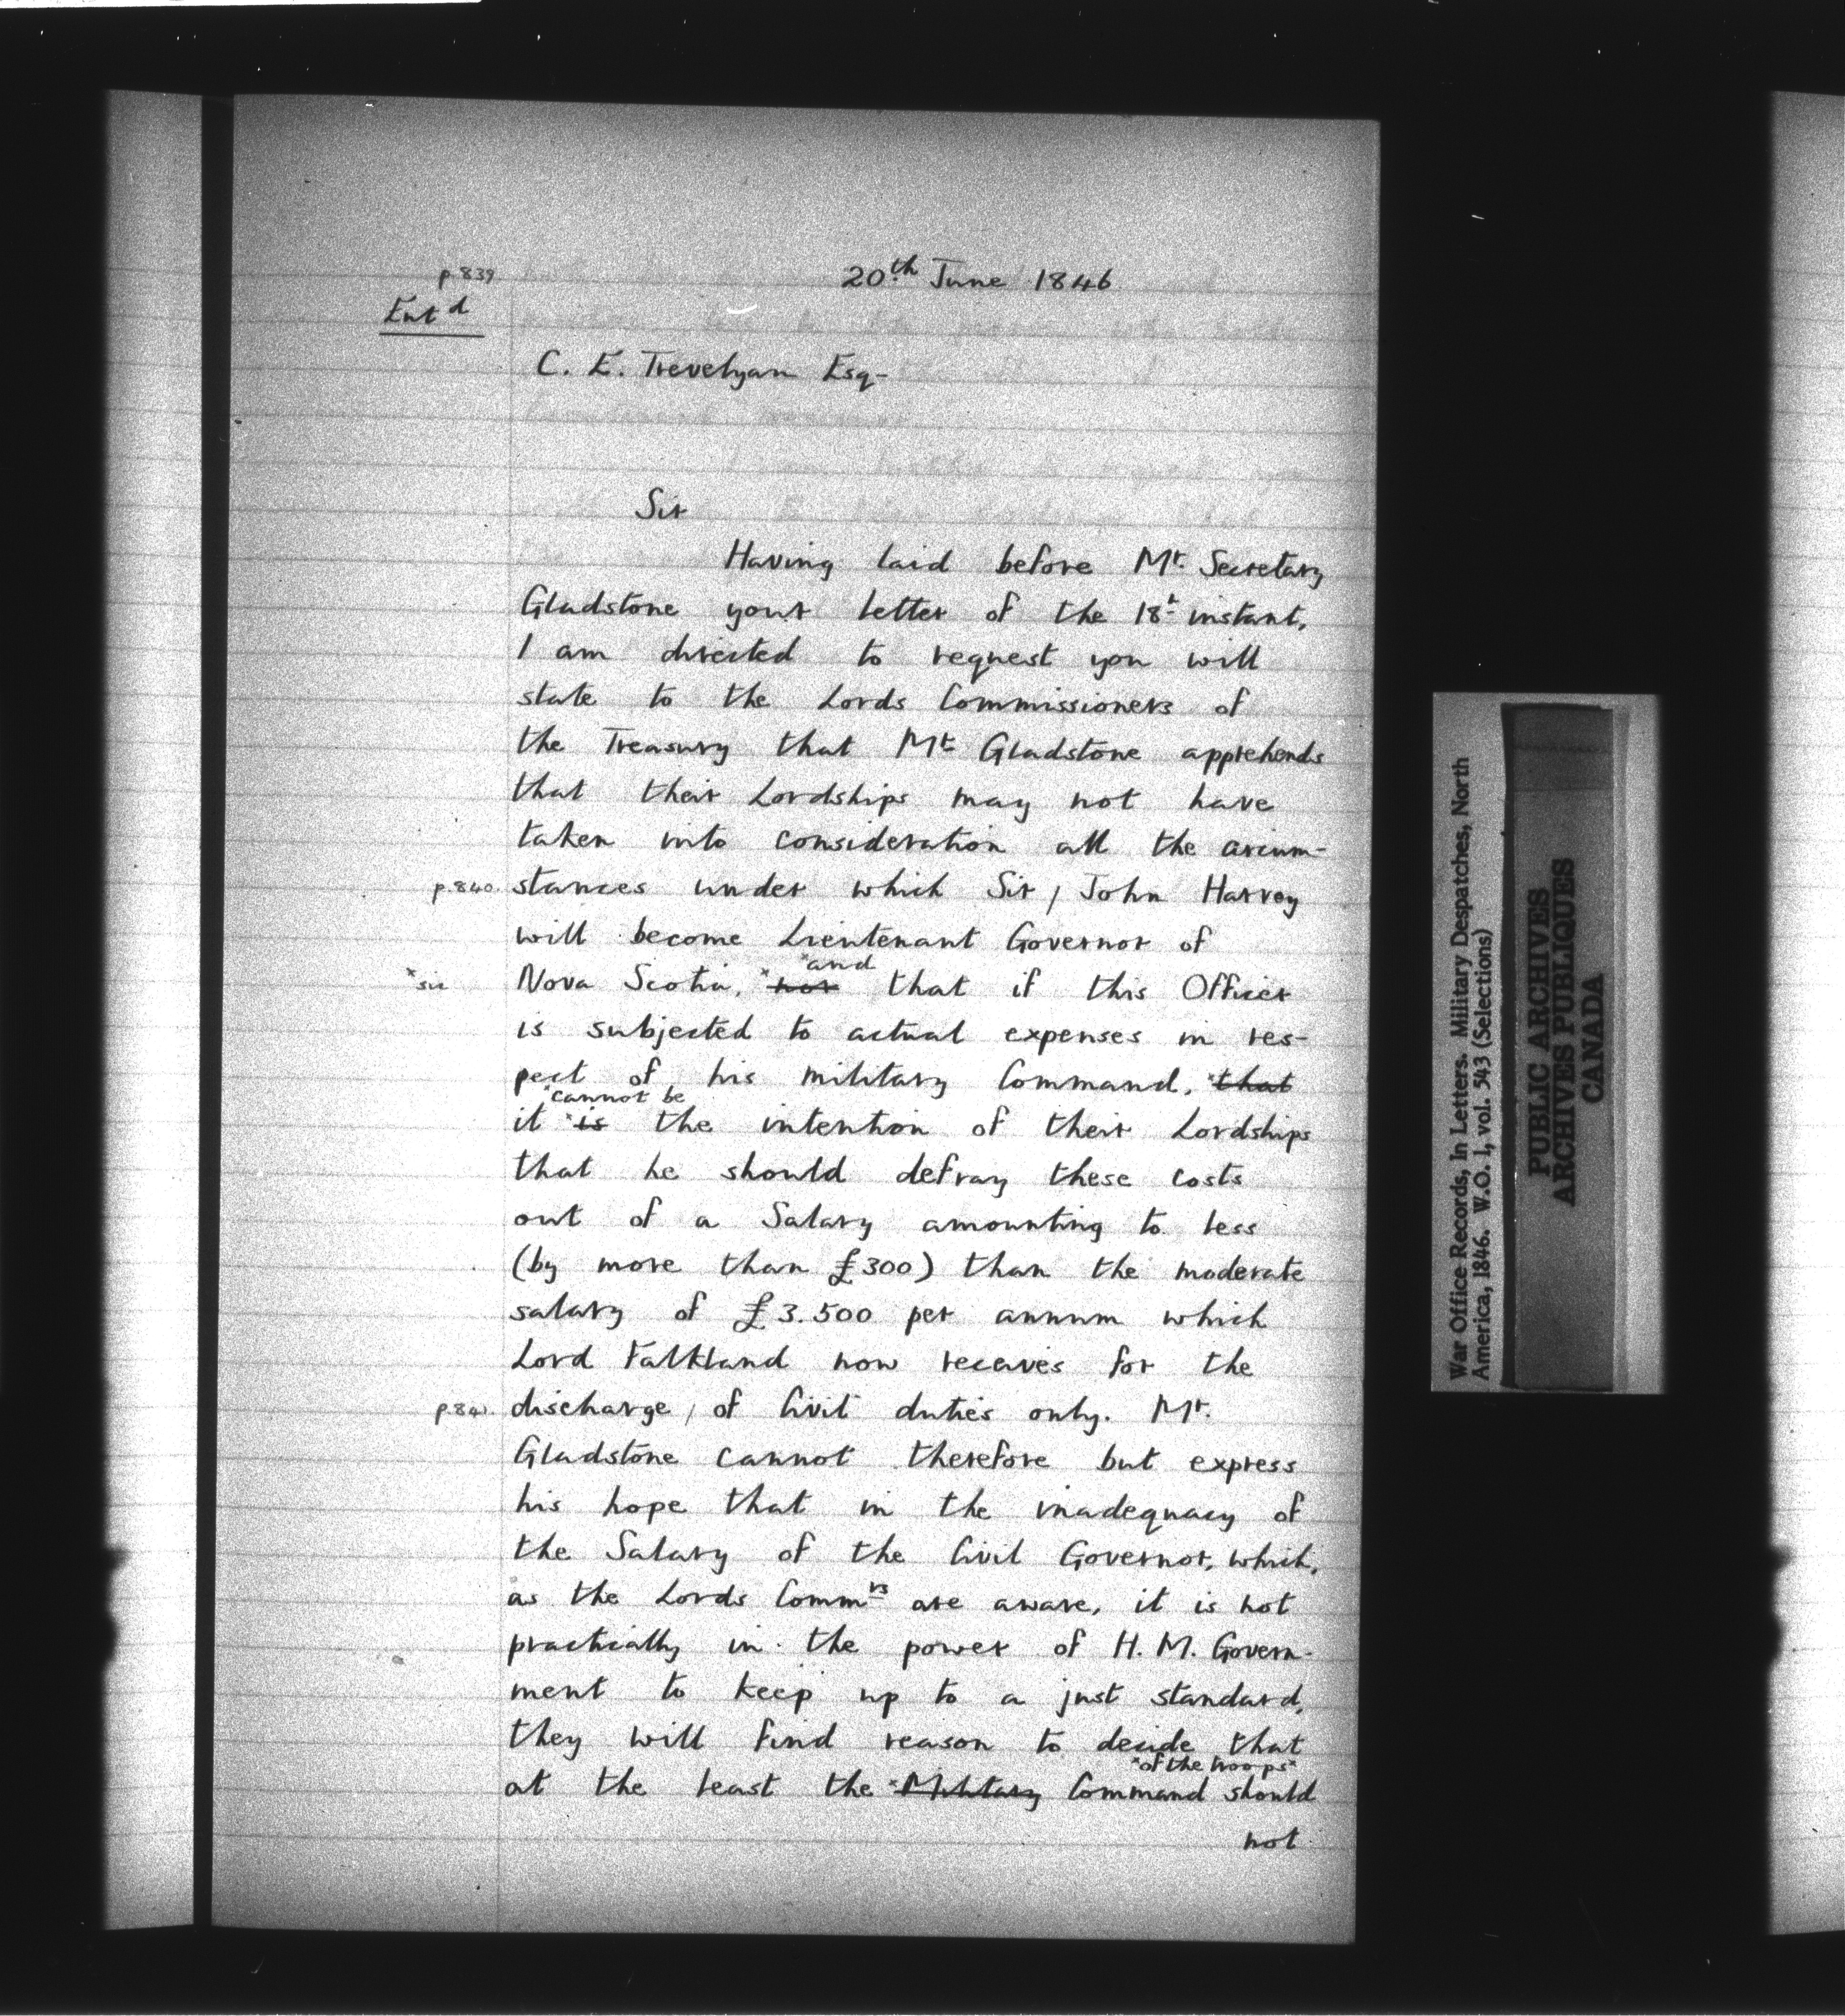 p.839
20th June 1846
Entd
C. E. Trevelyan Esq-
Sir
Having laid before Mr. Secretary
Gladstone your letter of the 18t instant,
I am directed to request you will
state to the Lords Commissioners of
the Treasury that Mr Gladstone apprehends
that their Lordships may not have
taken into consideration all the circum-
p.840. stances under which Sir / John Harvey
will become Lieutenant Governor of
*and
*sic Nova Scotia, *nor that if this Officer
is subjected to actual expenses in res-
pect of, his military Command, *that
*cannot be
it *is the intention of their Lordships
that he should defray these costs
out of a Salary amounting to less
(by more than £300) than the moderate
salary of £3.500 per annum which
Lord Falkland now receives for the
p.841. discharge / of Civil duties only. Mr.
Gladstone cannot therefore but express
his hope that in the inadequacy of
the Salary of the Civil Governor, which,
as the Lords Commrs are aware, it is not
practically in the power of H. M. Govern-
ment to keep up to a just standard,
they will find reason to decide that
*of the troops*
at the least the *Military Command should
not
War Office Records, In Letters. Military Despatches, North
America, 1846. W.O. 1, vol. 543 (Selections)
PUBLIC ARCHIVES
ARCHIVES PUBLIQUES
CANADA